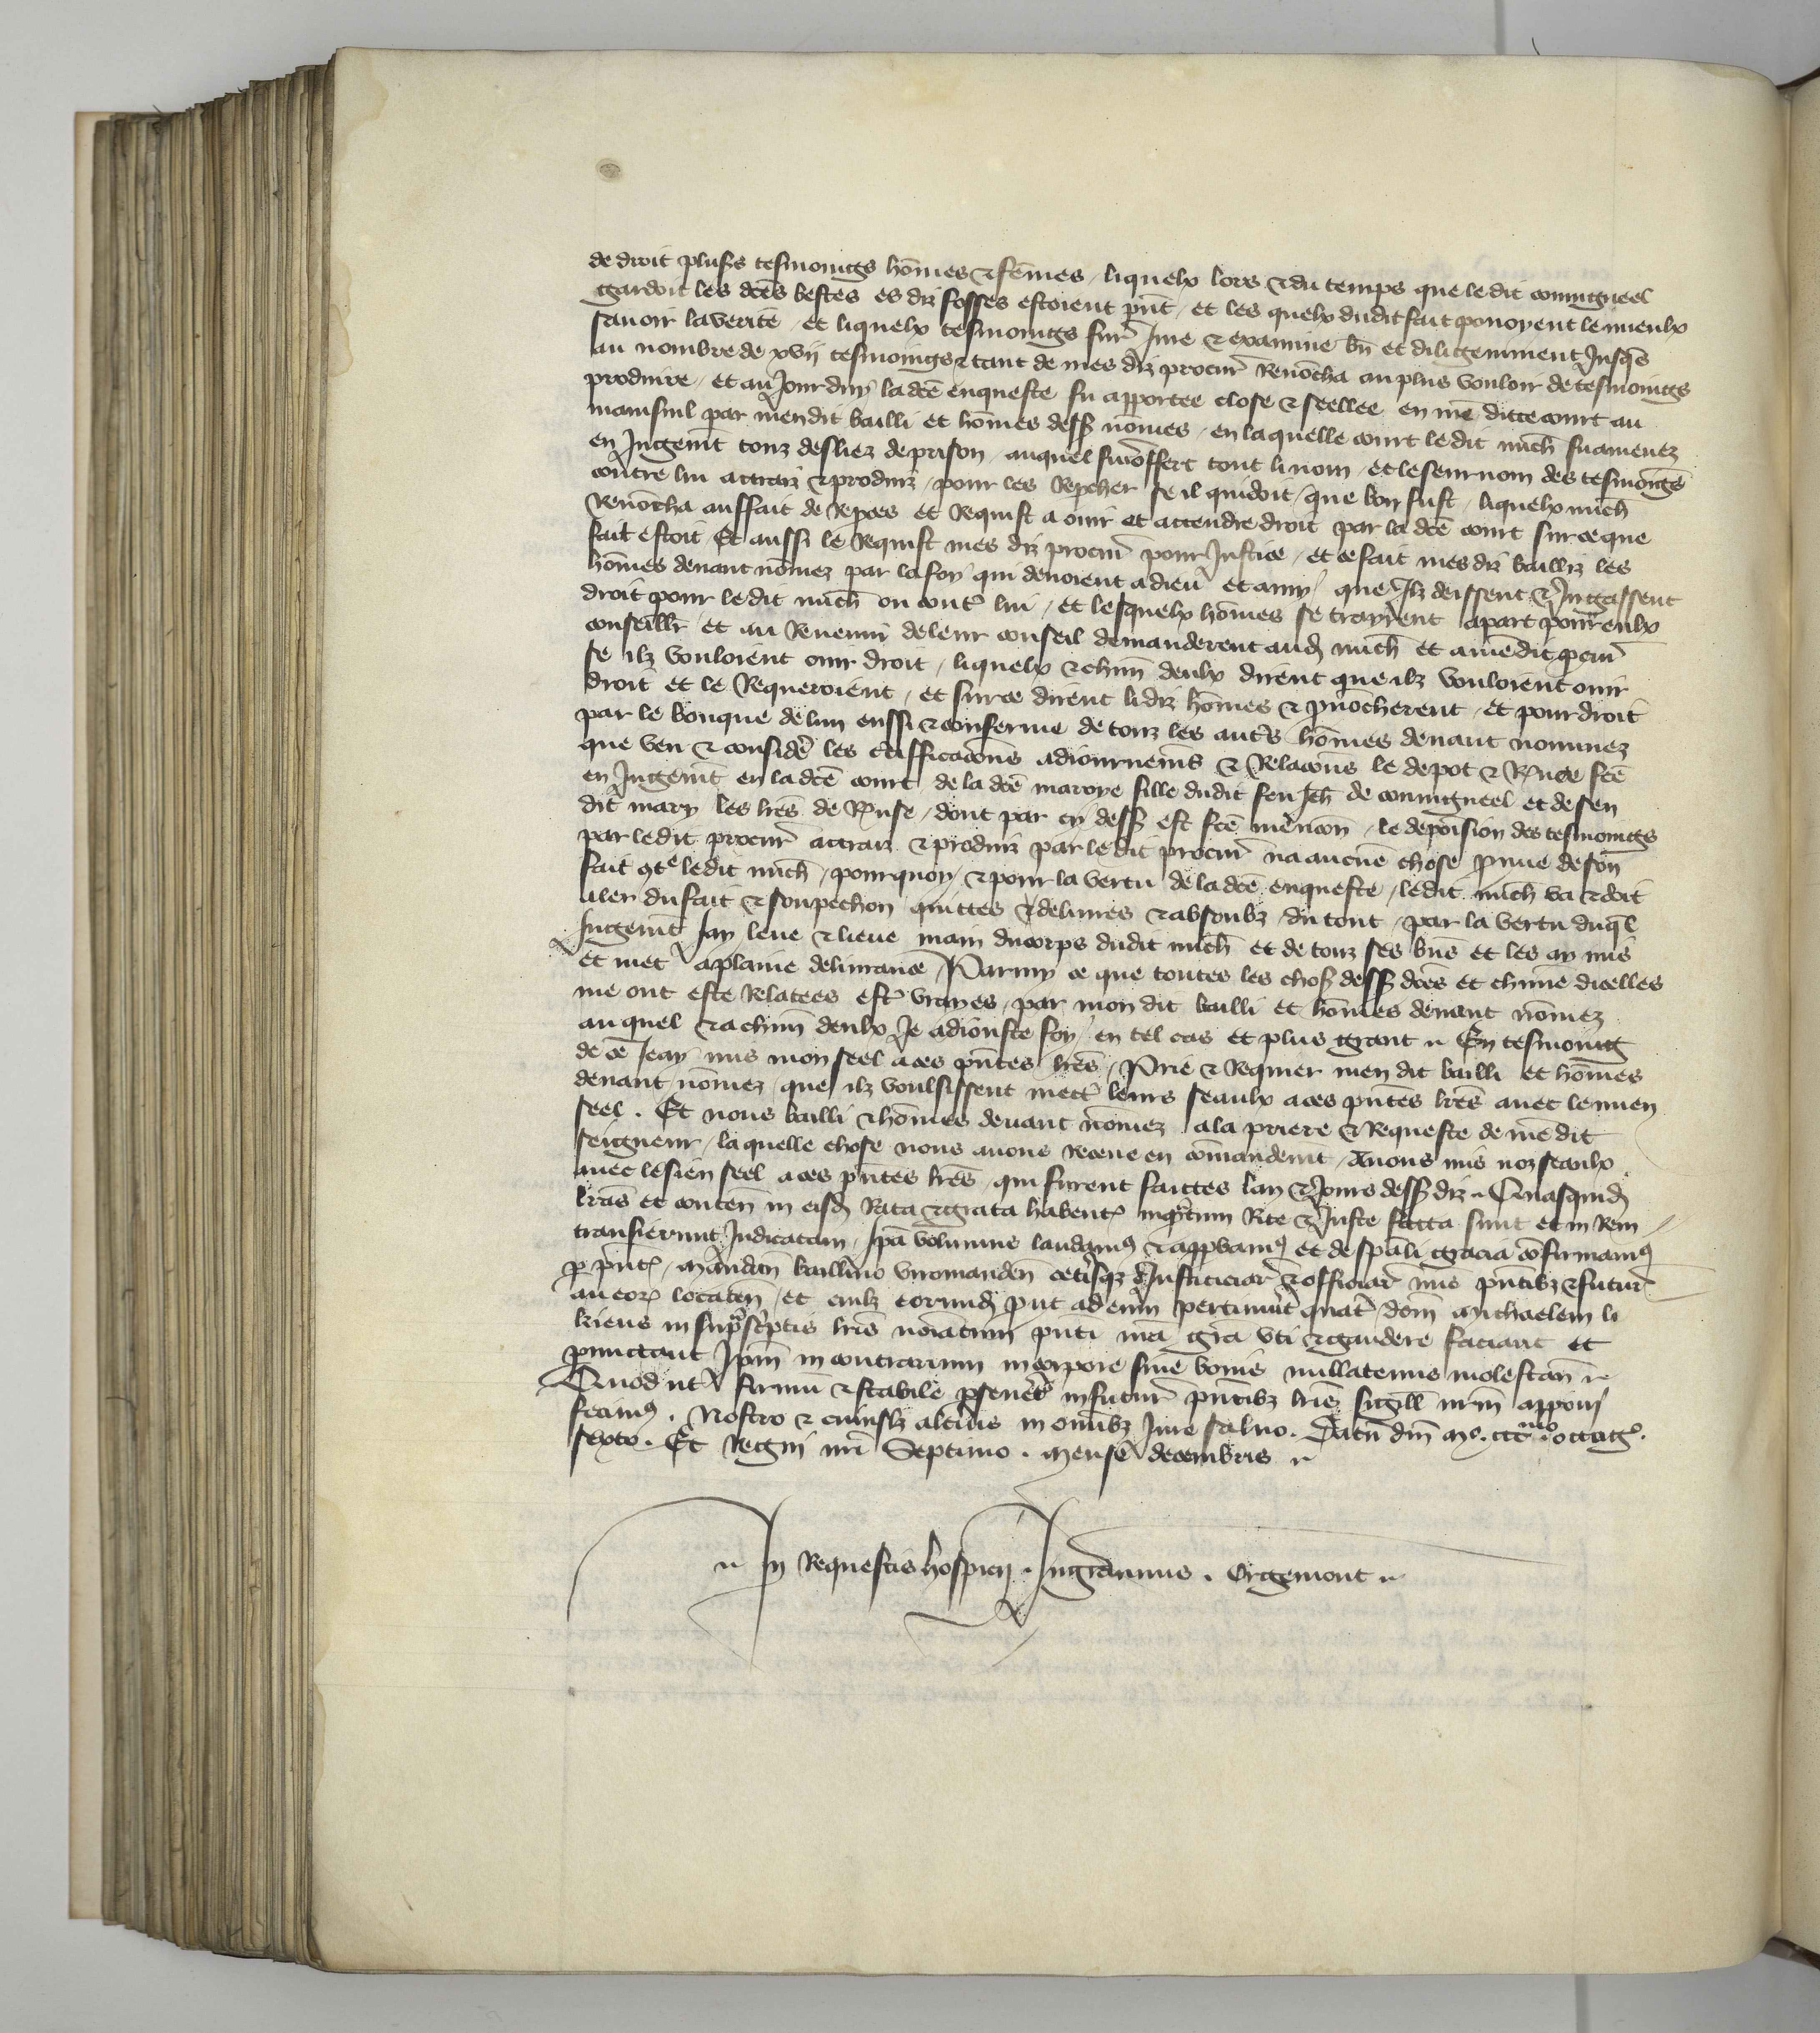 de droit plusrs tesmoings hōmes & fēmes / liquelx lors & du temps que ledit conuigneel
gardoit les dctēs bestes es diz fosses estoient pn̄t / et les quelx dudit fait pouoyent le mieulx
sauoir la verite / et liquelx tesmoings fur̄ Jure & examine bn̄ et diligenment Jusqs
au nombre de xvij tesmoings & tant de mes diz procur̄ Renōcha au plus vouloir de tesmoings
produire / et au Jour duy la dcē enqueste fu apportee close & seellee en mē ditte court au
par mendit bailli et hōmes dess nōmes / en la quelle court le dit mich̄ fu amenez
en Jugemt touz desliez de prison / auquel fu offert tout li nom / et le seurnom des tesmoings
contre lui attraiz & produiz / pour les Repcher se il quidoit / que bon fust / liquelx mich̄
Renōcha au ffait de Repces et Requist a ouir et attendre droit par la dcē court sur ce que
fait estoit Et aussi le Requist mes diz procur̄ pour Justice / et ce fait mes diz bailliz les
hōmes deuant nōmez par la foy qui deuoient a dieu et a my / que Ilz deissent & Jugassent
droit pour ledit mich̄ ou contr̄ lui / et lesquelx hōmes se trayrent apart pour eulx
conseillr̄ et au Reuenir de leur conseil demanderent aud mich̄ et a mēdit pcur̄
se ilz vouloient ouir droit / liquelx & chūn deulx dirent que ilz vouloient ouir
droit et le Requeroient / et sur ce dirent lidiz hōmes & pnōcherent / Et pour droit
par le bouque de lun eulx & conferme de touz les autrs hōmes deuant nommez
que veu & considr̄ les adiournemēs & Relacōns le depot & Ruse fcē
en Jugemt en la dcē court de la dcē maroye fille dudit feu Jeh̄ de conuigneel et de sen
dit mary les lrēs de Ruse / dont par cy dess est fcē mēncōn / le deposision des tesmoings
par ledit procur̄ attraiz & produiz par le dit procur̄ na aucune chose pruue de son
fait 9tr̄ ledit mich̄ / pour quoy / & pour la vertu de la dcē enqueste / ledit mich̄ va & doit
aler du fait & soupechon quittes & deliures & absoubz du tout / par la vertu duql̄
Jugemt Jay leue & lieue main du corps dudit mich̄ et de touz ses bns̄ et les ay mis
et met a plaine deliurance / Parmy ce que toutes les chos̄ dess dcēs et chūne dicelles
me ont este Relatees estr̄ vrayes / par mon dit bailli et hōmes deuant nōmez
au quel & a chūn deulx Je adiouste foy / en tel cas et plus grant .. En tesmoing
de cē Jeay mis mon seel a ces pn̄tes lrēs / Prie & Requier men dit bailli et hōmes
deuant nōmez / que ilz voulsissent mectr̄ leurs seaulx a ces pn̄tes lrēs auec le mien
seel . Et nous bailli & hōmes deuant nōmez a la priere & Requeste de mē dit
seigneur / la quelle chose nous auons Receue en cōmandemt / Auons mis noz seaulx
auec le sien seel a ces pn̄tes lrēs / qui furent faittes lan & Jours dess diz .. Quasquid
lrās et conten̄ in eisd Rata & grata habent̄ inqntum Rite & Juste facta sunt et in Rem
transierunt Judicatam / Ipā volumus laudam9 & appbam9 et de spāli gracia cōfirmam9
p pn̄t / Mandan̄ bailliuo viromanden̄ cetisqz Justiciar̄ & officiar̄ nris pn̄tibz & futur̄
aut eor locaten̄ / et cuilz eorund put ad eum ptinuit quatr̄ dom̄ Michaelem li
kieus in supscptis lris noīatum pn̄ti nrā grā vti & gaudere faciant et
pmittant Ipm̄ in contrarium in corpore siue bonis nullatenus molestan̄ ..
Quod ut firmū & stabile pseuet̄ in futur̄ pn̄tibz lrīs sigill̄ nrm̄ appoī
fecim9 . Nostro & cuiuslz altius in omībz Jure saluo . Datū dn̄i M°. ccc.mo octog°.
sexto . Et Regni nrī Septimo . Mense decembris ..
.. In Requestis hospicij . Jngrannus . Orgemont ..